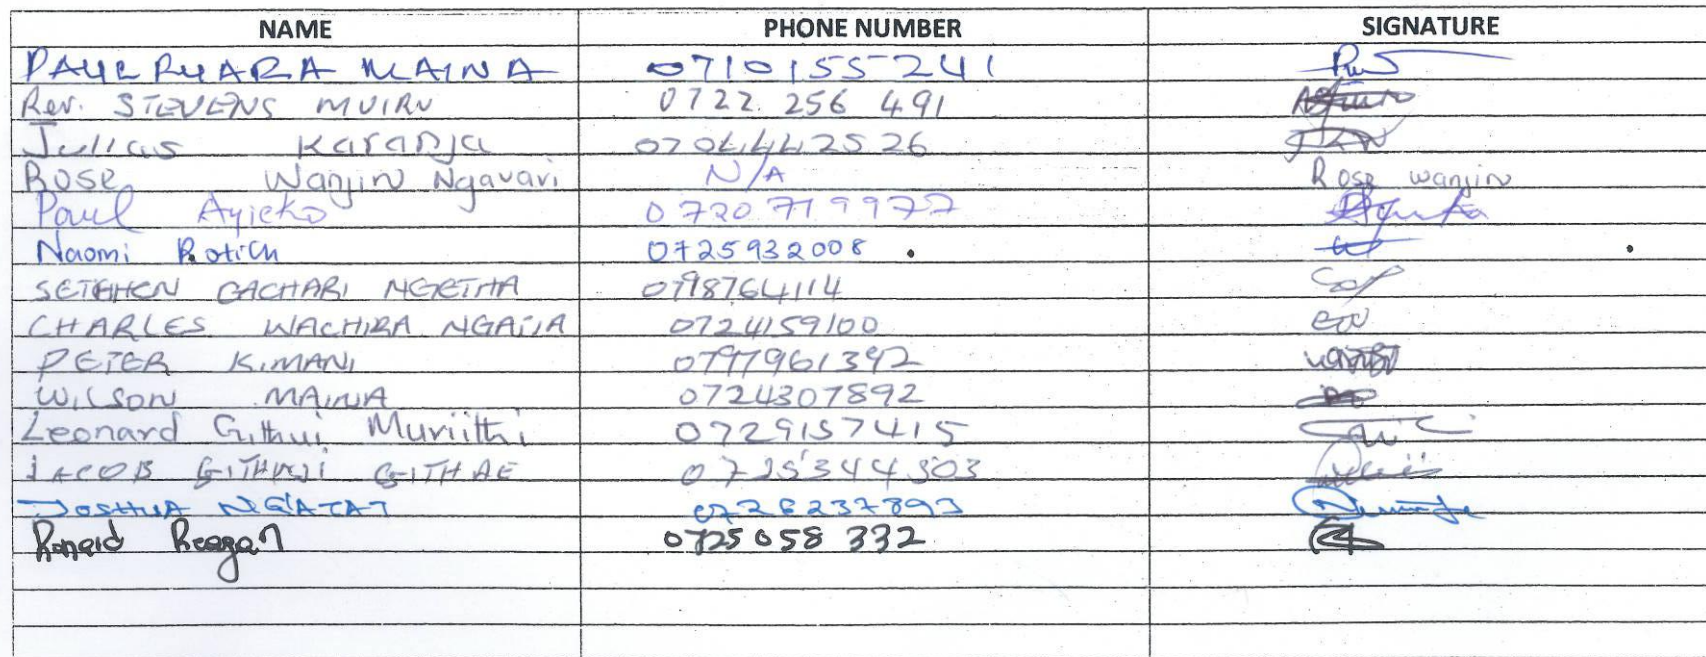 NAME PHONE NUMBER SIGNATURE
PAUL RUARA MAINA 0710155241
Rev. STEVENS MUIRU 0722 256 491
Julius Karanja 0704442526
Rose Wanjiru Ngavavi N/A Rose Wanjiru
Paul Ayieko 0720719977
Naomi Rotich 0725932008
GACHARI NGETHA 0798764114
CHARLES WACHIRA 0724159100
PETER KIMANI 0797961392
WILSON MAINA 0724307892
Leonard Githui Muriithi 0729157415
JACOB GITHUJI GITHAE 0725344303
JOSHUA 0726237893
Ronald Reagan 0725 058 332